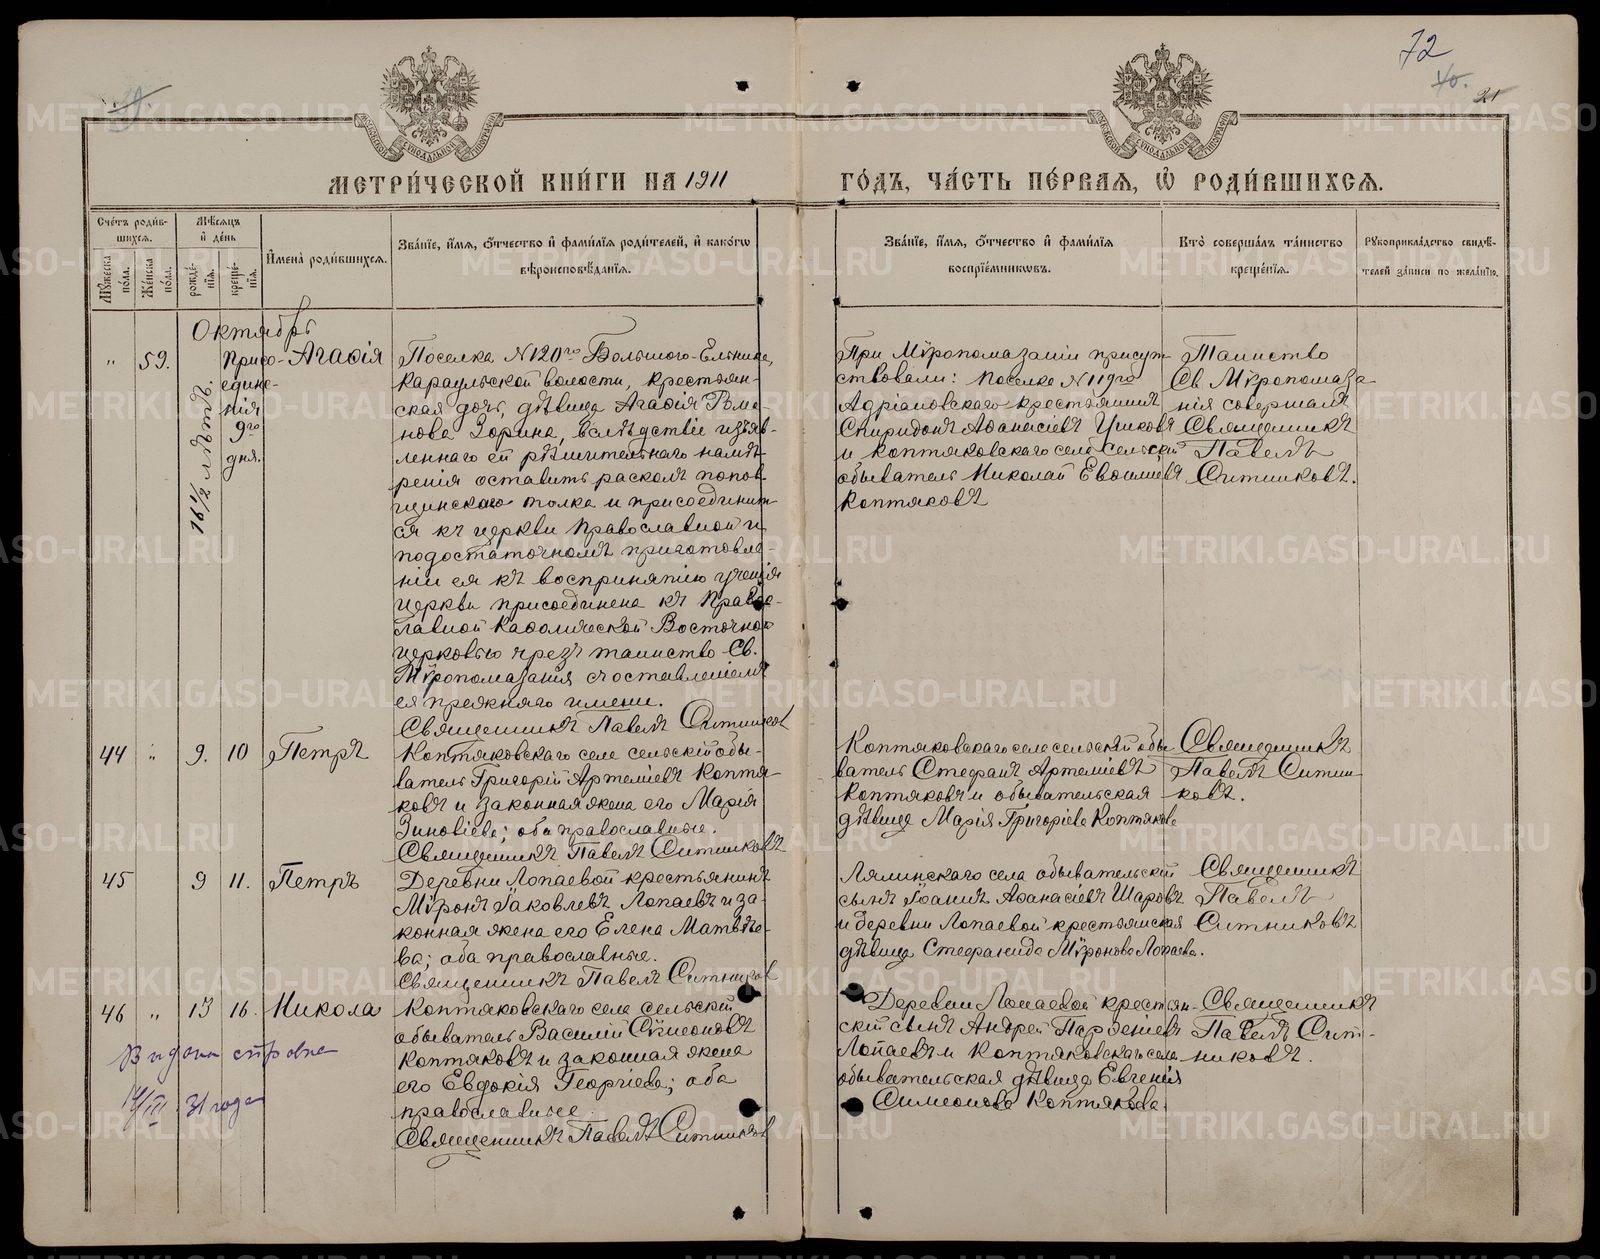 72
40.
21
39.
МЕТРИ́ЧЕСКОЙ КНИ́ГИ НА 1911
ГО́ДЪ, ЧА́СТЬ ПЕ́РВАЯ, Ѡ҆ РОДИ́ВШИХСѦ.
Сче́тъ роди́в-
шихсѧ.
Мѹ́жеска по́ла.
Же́нска по́ла.
Мѣ́сѧцъ
и҆ де́нь
рожде́-
нїѧ.
креще́-
нїѧ.
И҆мена̀ роди́вшихсѧ.
Зва́нїе, и҆́мѧ, ѻ҆́тчество и҆ фами́лїѧ роди́телей, и҆ како́гѡ
вѣроисповѣ́данїѧ.
Зва́нїе, и҆́мѧ, ѻ҆́тчество и҆ фами́лїѧ
воспрїе́мникѡвъ.
Кто̀ соверша́лъ та́инство
креще́нїѧ.
Рѹкоприкла́дство свидѣ́-
телей за́писи по жела́нїю.
Октябрь
„ 59.
16 1/2 лѣтъ
Присо-
едине-
нія
9го
дня.
Агаѳія
Поселка №120го Большого-Ельника,
Караульской волости, крестьян-
ская дочь, дѣвица Агаѳія Рома-
нова Зорина, вслѣдствіе изъяв-
леннаго ей рѣшительнаго намѣ-
ренія оставить расколъ попов-
щинскаго толка и присоединит-
ся къ церкви Православной и
по достаточномъ приготовле-
ніи ея къ воспринятію ученія
церкви присоединена къ Право-
славной Каѳолической Восточной
церковью чрезъ таинство Св.
Мѵропомазанія съ оставленіемъ
ея прежняго имени.
Священникъ Павелъ Ситников
При Мѵропомазаніи присут-
ствовали: поселка №119го
Адріановскаго крестьянинъ
Спиридонъ Аѳанасіевъ Ушковъ
и Коптяковскаго села сельскій
обыватель Николай Евѳиміевъ
Коптяковъ
Таинство
Св. Мѵропомаза-
нія совершалъ
Священникъ
Павелъ
Ситниковъ.
44 „ 9. 10 Петръ
Коптяковскаго села сельскій обы-
ватель Григорій Артеміевъ Коптя-
ковъ и законная жена его Марія
Зиновіева; оба православные.
Священникъ Павелъ Ситниковъ
Коптяковскаго села сельскій обы-
ватель Стефанъ Артеміевъ
Коптяковъ и обывательская
дѣвица Марія Григоріева Коптякова
Священникъ
Павелъ Ситни-
ковъ.
45 9 11. Петръ
Деревни Лопаевой крестьянинъ
Мѵронъ Іаковлевъ Лопаевъ и за-
конная жена его Елена Матвѣе-
ва; оба православные.
Священникъ Павелъ Ситников
Лялинскаго села обывательскій
сынъ Іоаннъ Аѳанасіевъ Шаровъ
и деревни Лопаевой крестьянская
дѣвица Стефанида Мѵронова Лопаева.
Священникъ
Павелъ
Ситниковъ
46 „ 13 16. Никола
Коптяковскаго села сельскій
обыватель Василій Сѵмеоновъ
Коптяковъ и законная жена
его Евдокія Георгіева; оба
православные.
Священникъ Павелъ Ситников
Деревни Лопаевой крестьян-
скій сынъ Андрей Парѳеніевъ
Лопаевъ и Коптяковскаго села
обывательская дѣвица Евгенія
Симеонова Коптякова.
Священникъ
Павелъ Сит-
никовъ.
Выдана справка
14/III 31 года
METRIKI.GASO-URAL.RU